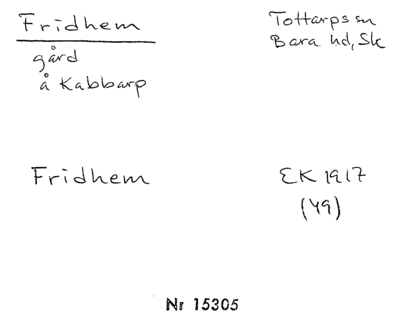 Fridhem
Tottarps sn
Bara hd, Sk
gård
å Kabbarp
Fridhem
EK 1917
(49)
Nr 15305